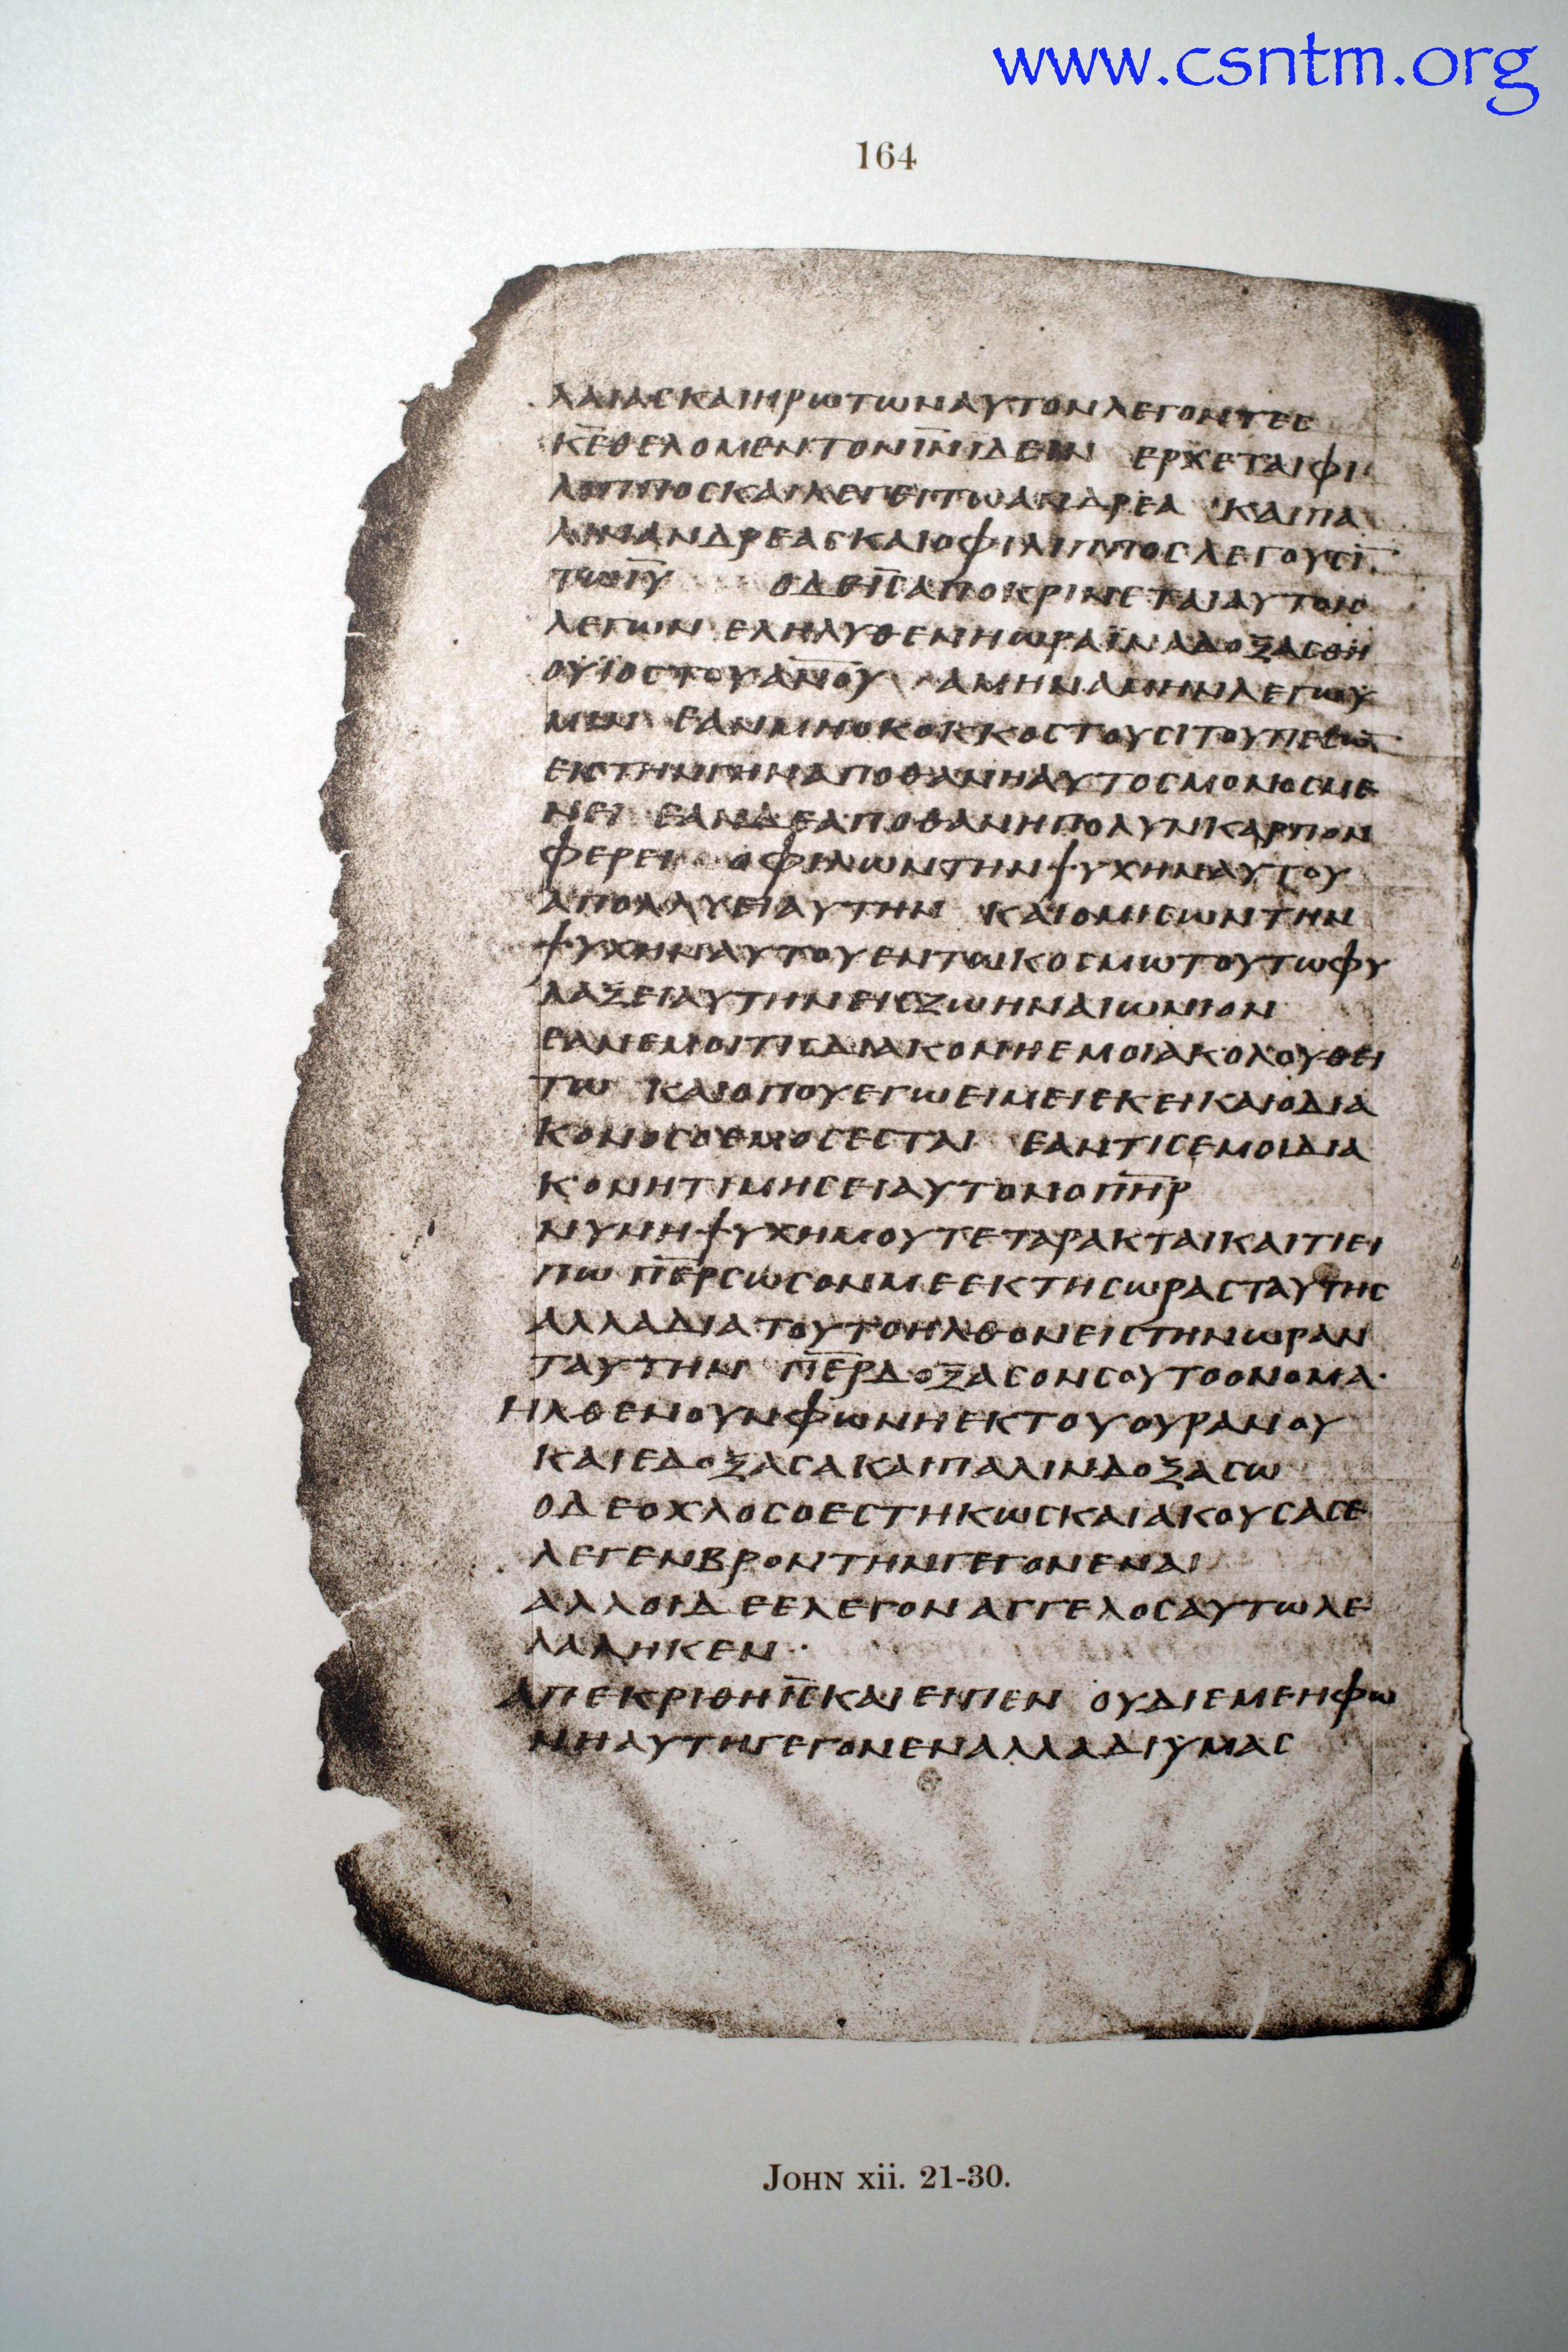 www.csntm.org
164
ΛΑΙΑСΚΑΙΗΡΩΤΩΝΑΥΤΟΝΛΕΓΟΝΤΕС
Κ̅Ε̅ΘΕΛΟΜΕΝΤΟΝΙ̅Ν̅ΙΔΕΙΝ ΕΡΧΕΤΑΙΦΙ
ΛΙΠΠΟСΚΑΙΛΕΓΕΙΤΩΑΝΔΡΕΑ ΚΑΙΠΑ
ΛΙΝΑΝΔΡΕΑСΚΑΙΟΦΙΛΙΠΠΟСΛΕΓΟΥСΙ̅
ΤΩΙ̅Υ̅ ΟΔΕΙ̅С̅ΑΠΟΚΡΙΝΕΤΑΙΑΥΤΟΙС
ΛΕΓΩΝ ΕΛΗΛΥΘΕΝΗΩΡΑΪΝΑΔΟΞΑСΘΗ
ΟΥΪΟСΤΟΥΑ̅Ν̅Ο̅Υ̅ ΑΜΗΝΑΜΗΝΛΕΓΩΥ
ΜΙΝ ΕΑΝΜΗΟΚΟΚΚΟСΤΟΥСΙΤΟΥΠΕСΩ̅
ΕΙСΤΗΝΓΗΝΑΠΟΘΑΝΗΑΥΤΟСΜΟΝΟСΜΕ
ΝΕΙ ΕΑΝΔΕΑΠΟΘΑΝΗΠΟΛΥΝΚΑΡΠΟΝ
ΦΕΡΕΙ ΟΦΙΛΩΝΤΗΝΨΥΧΗΝΑΥΤΟΥ
ΑΠΟΛΛΥΕΙΑΥΤΗΝ ΚΑΙΟΜΙСΩΝΤΗΝ
ΨΥΧΗΝΑΥΤΟΥΕΝΤΩΚΟСΜΩΤΟΥΤΩΦΥ
ΛΑΞΕΙΑΥΤΗΝΕΙСΖΩΗΝΑΙΩΝΙΟΝ
ΕΑΝΕΜΟΙΤΙСΔΙΑΚΟΝΗΕΜΟΙΑΚΟΛΟΥΘΕΙ
ΤΩ ΚΑΙΟΠΟΥΕΓΩΕΙΜΕΙΕΚΕΙΚΑΙΟΔΙΑ
ΚΟΝΟСΟΕΜΟСΕСΤΑΙ ΕΑΝΤΙСΕΜΟΙΔΙΑ
ΚΟΝΗΤΙΜΗСΕΙΑΥΤΟΝΟΠ̅Η̅Ρ̅
ΝΥΝΗΨΥΧΗΜΟΥΤΕΤΑΡΑΚΤΑΙΚΑΙΤΙΕΙ
ΠΩ Π̅Ε̅Ρ̅СΩСΟΝΜΕΕΚΤΗСΩΡΑСΤΑΥΤΗС
ΑΛΛΑΔΙΑΤΟΥΤΟΗΛΘΟΝΕΙСΤΗΝΩΡΑΝ
ΤΑΥΤΗΝ Π̅Ε̅Ρ̅ΔΟΞΑСΟΝСΟΥΤΟΟΝΟΜΑ·
ΗΛΘΕΝΟΥΝΦΩΝΗΕΚΤΟΥΟΥΡΑΝΟΥ
ΚΑΙΕΔΟΞΑСΑΚΑΙΠΑΛΙΝΔΟΞΑСΩ
ΟΔΕΟΧΛΟСΟΕСΤΗΚΩСΚΑΙΑΚΟΥСΑСΕ
ΛΕΓΕΝΒΡΟΝΤΗΝΓΕΓΟΝΕΝΑΙ
ΑΛΛΟΙΔΕΕΛΕΓΟΝΑΓΓΕΛΟСΑΥΤΩΛΕ
ΛΑΛΗΚΕΝ·
ΑΠΕΚΡΙΘΗΙ̅С̅ΚΑΙΕΙΠΕΝ ΟΥΔΙΕΜΕΗΦΩ
ΝΗΑΥΤΗΓΕΓΟΝΕΝΑΛΛΑΔΙΥΜΑС
John xii. 21-30.